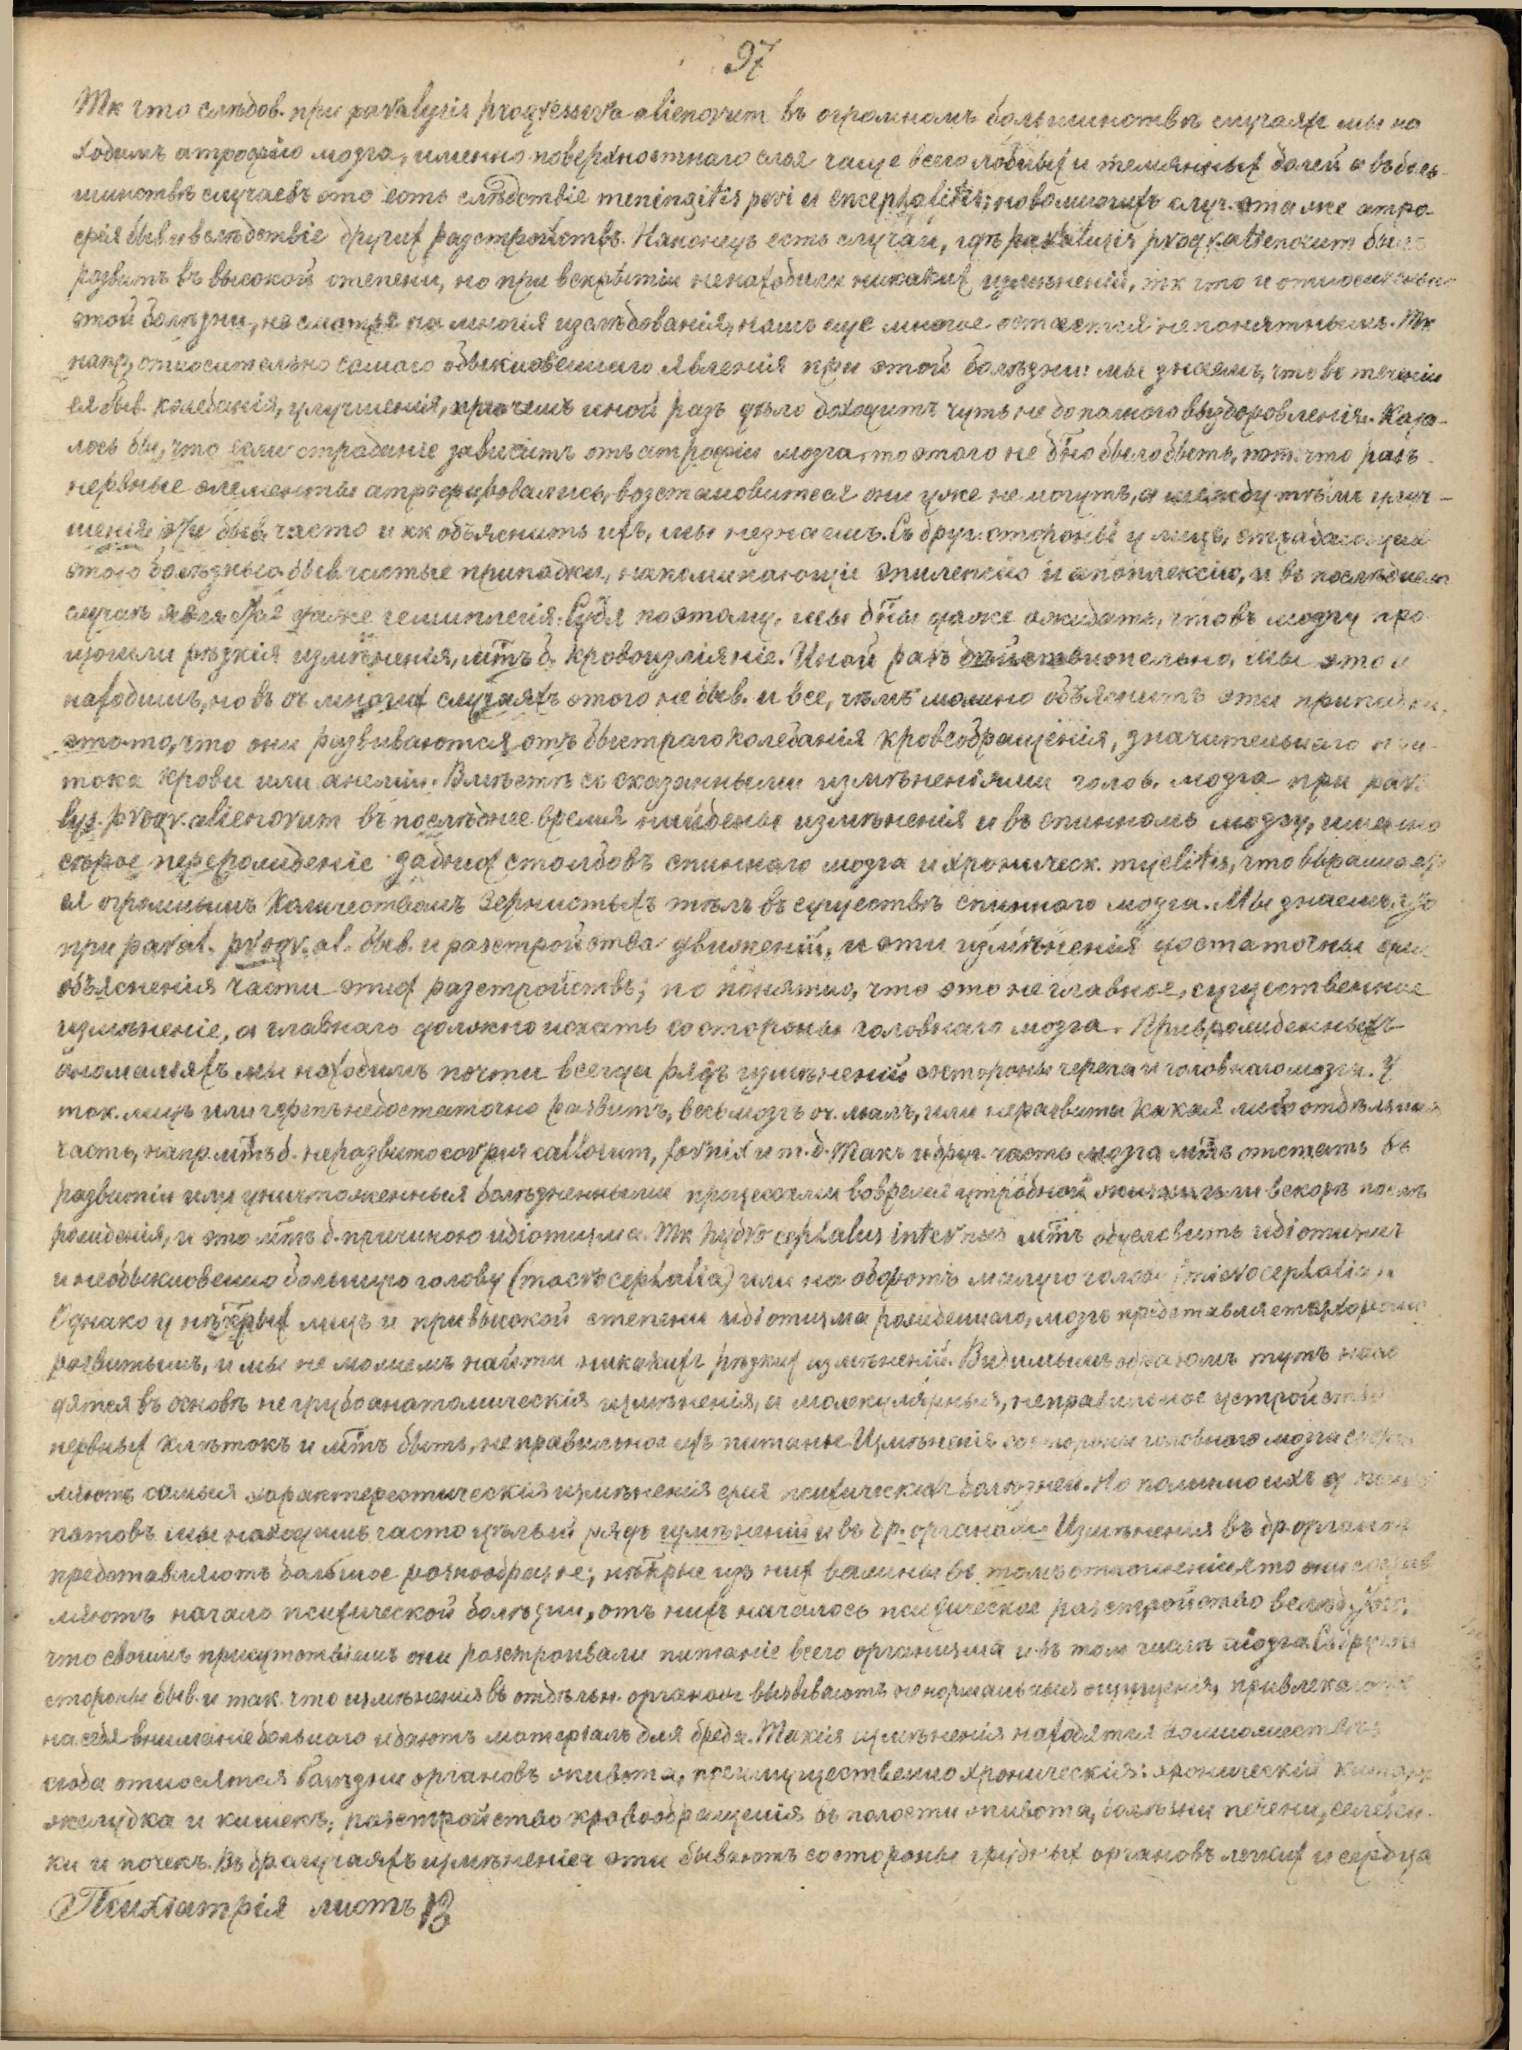 97
Тк что слѣдов. при paralysis progressiva alienorum въ огромномъ большинствѣ случаяхъ мы на
ходимъ атрофiю мозга, именно поверхностнаго слоя чаще всего лобныхъ и темянныхъ долей а въ боль-
шинствѣ случаевъ это есть слѣдствiе meningitis peri и encephalitis; но во многихъ случ. эта же атро-
фiя быв. и вслѣдствiе другихъ разстройствъ. Наконецъ есть случаи, гдѣ paralysis progr. alienorum былъ
развитъ въ высокой степени, но при вскрытiи не находили никакихъ измѣненiй, тк что и относительно
этой болѣзни, не смотря на многiя изслѣдованiя, намъ еще многое остается непонятнымъ. Тк
напр, относительно самаго обыкновеннаго явленiя при этой болѣзни: мы знаемъ, что во теченiи
ея быв. колебанiя, улучшенiя, причемъ иной разъ дѣло доходитъ чуть не до полного выздоровленiя. Каза-
лось бы, что если страданiе зависитъ отъ атрофiи мозга, то этого не бно было быть, пот. что разъ
нервные элементы атрофировались, возстановиться они уже не могутъ, а между тѣмъ улуч-
шенiя эти быв. часто и кк объяснить ихъ, мы незнаемъ. Съ друг. стороны у лицъ, страдающихъ
этою болѣзнью быв частые припадки, напоминающiе эпилепсiю и апоплексiю, и въ послѣднемъ
случаѣ является даже гемиплегiя. Судя поэтому, мы бны даже ожидать, что въ мозгу про
изошли рѣзкiя измѣненiя, мтъ б. кровоизлiянiе. Иной разъ действительно, мы это и
находимъ, но въ оч многихъ случаяхъ этого не быв. и все, чѣмъ можно объяснить эти припадки,
это то, что они развиваются отъ быстраго колебанiя кровеобращенiя, значительнаго при
тока крови или анемiи. Вмѣстѣ со сказанными измѣненiями голов. мозга при para
lys. progr. alienorum въ послѣднее время найдены измѣненiя и въ спинномъ мозгу, именно
сѣрое перерожденiе заднихъ столбовъ спиннаго мозга и хроническ. myelitis, что выражает
ся огромнымъ количествомъ зернистыхъ тѣлъ въ существѣ спинного мозга. Мы знаемъ, что
при paral. progr. al. быв. и разстройства движенiй, и эти измѣненiя достаточны для
объясненiя части этихъ разстройствъ; но понятно, что это не главное, существенное
измѣненiе, а главнаго должно искать со стороны головнаго мозга. При врожденныхъ
аномалiяхъ мы находимъ почти всегда рядъ измѣненiй со стороны черепа и головнаго мозга. У
так. лицъ или черепъ недостаточно развитъ, весь мозгъ оч. малъ, или неразвита какая либо отдѣльная
часть, напр. мтъ б. неразвито corpus callosum, fornix и т. д. Такъ и друг. часть мозга мтъ отстать въ
развитiи или уничтоженныя болѣзненными процессами вовремя утробной жизни или вскорѣ послѣ
рожденiя, и это мтъ б. причиною идiотизма. Тк hydrocephalus internus мтъ обусловить идiотизмъ
и необыкновенно большую голову (macrocephalia) или на оборотъ малую голову (microcephalia).
Однако у нѣкорыхъ лицъ и при высокой степени идiотизма рожденнаго, мозгъ представляется хорошо
развитымъ, и мы не можемъ найти никакихъ рѣзкихъ измѣненiй. Видимымъ образомъ тутъ нахо
дятся въ основѣ не грубо анатомическiя измѣненiя, а молекулярныя, неправильное устройство
нервныхъ клѣтокъ и мтъ быть, неправильное ихъ питанье. Измѣненiя со стороны головного мозга состав
ляютъ самыя характеристическiя измѣненiя для психическихъ болѣзней. Но помимо ихъ у
патовъ мы находимъ часто цѣлый рядъ измѣненiй и въ др. органахъ. Измѣненiя въ др. органахъ
представляютъ большое разнообразiе; нѣкрые изъ нихъ важны въ томъ отношенiи, что они состав
ляютъ начало психической болѣзни, отъ нихъ началось психическое разстройство вслѣд. того,
что своимъ присутствiемъ они разстроивали питанiе всего организма и въ том числѣ мозга. Съ другой
стороны быв. и так. что измѣненiя въ отдѣльн. органахъ вызываютъ ненормальныя ощущенiя, привлекаютъ
на себя вниманiе больного и даютъ матерiалъ для бреда. Такiя измѣненiя находятся во множествѣ:
сюда относятся болѣзни органовъ живота, преимущественно хроническiя: хроническiй катарръ
желудка и кишекъ, разстройство кровообращенiя въ полости живота, болѣзни печени, селезен-
ки и почекъ. Въ др. случаяхъ измѣненiя эти бываютъ со стороны грудныхъ органовъ легкихъ и сердца
Психiатрiя листъ 13